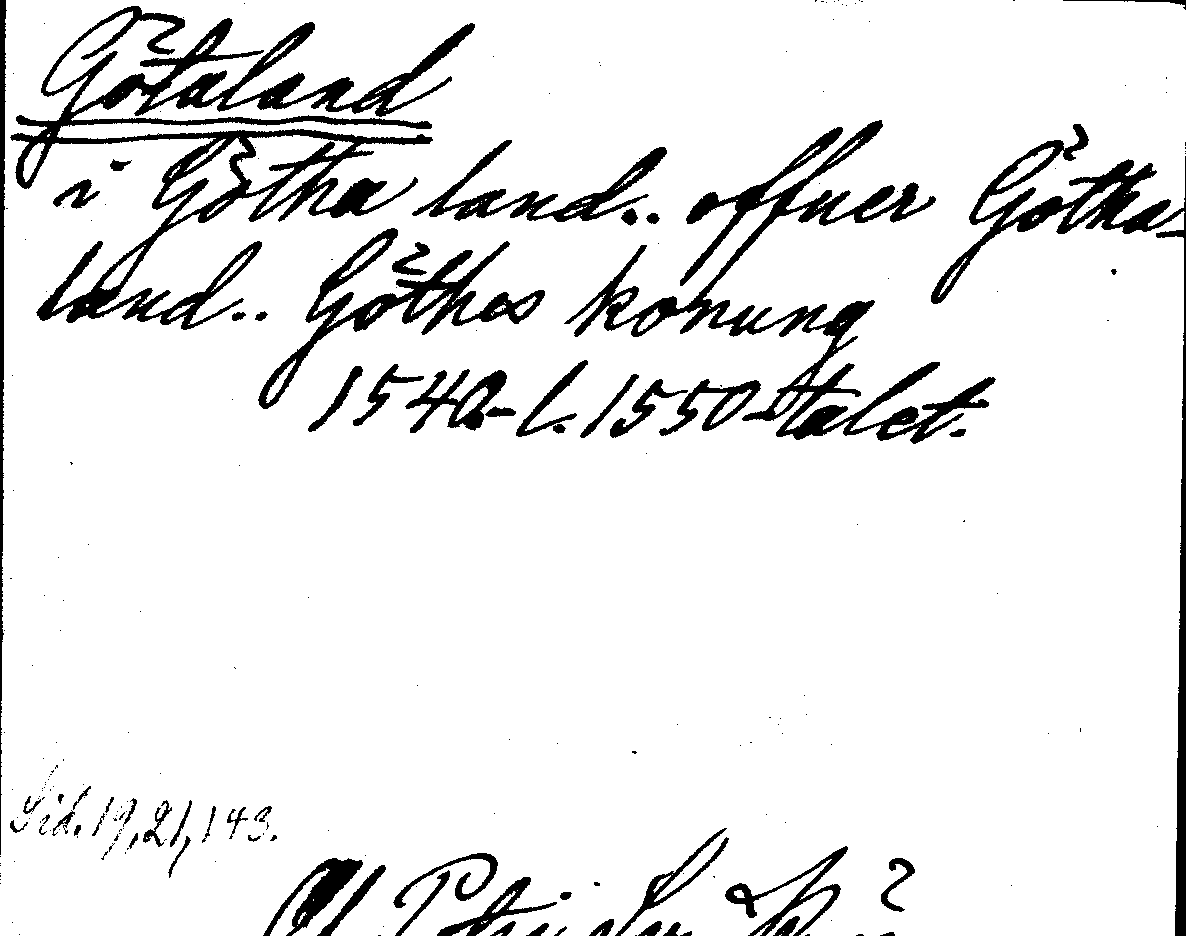 Götaland
i Götha land.. offuer Götha-
land.. Göthes konung
1540- l. 1550-talet.
Sid. 19, 21, 143.
Petri